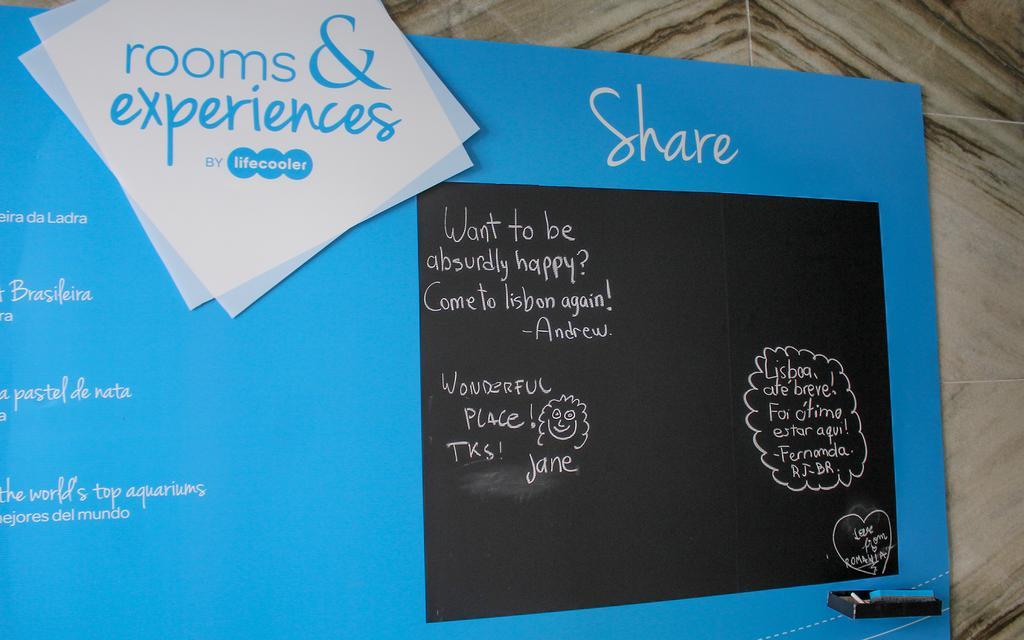 rooms &
experiences
BY lifecooler
Share
eira da Ladra
Brasileira
ra
a pastel de nata
a
the world's top aquariums
ejores del mundo
Want to be
absurdly happy?
Come to lisbon again!
-Andrew.
WONDERFUL
PLACE!
TKS!
Jane
Lisboa,
até breve!
Foi ótimo
estar aqui!
-Fernanda.
RJ-BR.
Love
from
ROMANIA